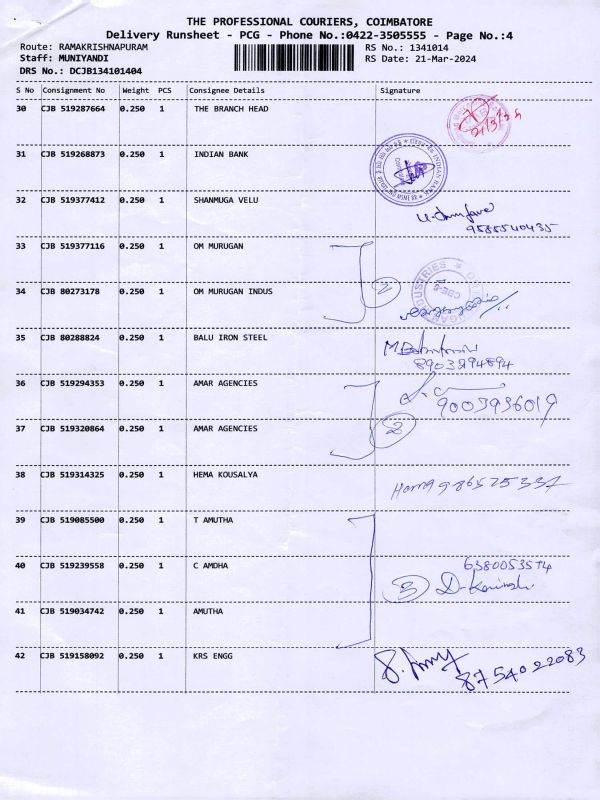 THE PROFESSIONAL COURIERS, COIMBATORE
Delivery Runsheet - PCG - Phone No.:0422-3505555 - Page No.:4
Route: RAMAKRISHNAPURAM RS No.: 1341014
Staff: MUNIYANDI RS Date: 21-Mar-2024
DRS No.: DCJB134101404
S No Consignment No Weight PCS Consignee Details Signature
30 CJB 519287664 0.250 1 THE BRANCH HEAD
31 CJB 519268873 0.250 1 INDIAN BANK
32 CJB 519377412 0.250 1 SHANMUGA VELU
9585540435
33 CJB 519377116 0.250 1 OM MURUGAN
34 CJB 80273178 0.250 1 OM MURUGAN INDUS 2
35 CJB 80288824 0.250 1 BALU IRON STEEL
8903294894
36 CJB 519294353 0.250 1 AMAR AGENCIES
9003936019
37 CJB 519320864 0.250 1 AMAR AGENCIES 2
38 CJB 519314325 0.250 1 HEMA KOUSALYA
39 CJB 519085500 0.250 1 T AMUTHA
40 CJB 519239558 0.250 1 C AMDHA 6380053574
3
41 CJB 519034742 0.250 1 AMUTHA
42 CJB 519158092 0.250 1 KRS ENGG
8754022083